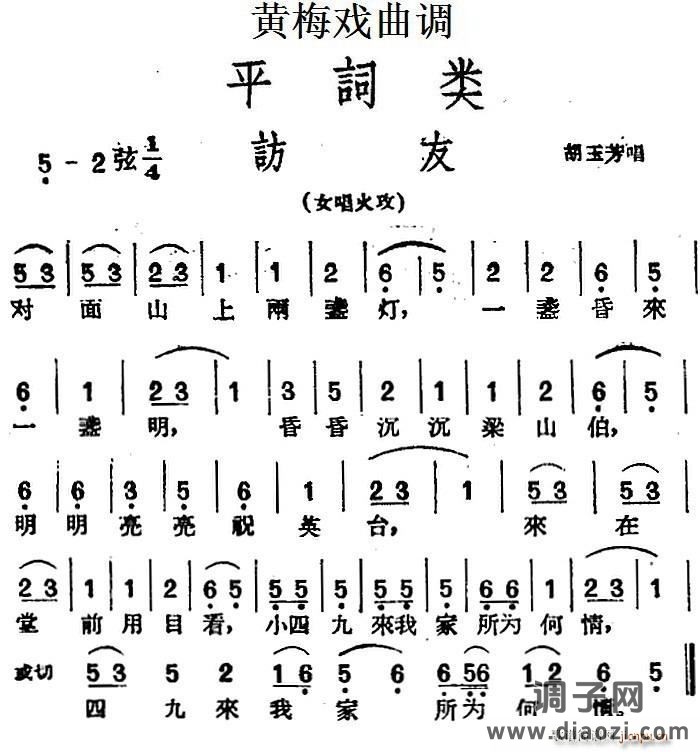 黄梅戏曲调
平詞类
5 - 2 弦 1/4 訪友 胡玉芳唱
(女唱火攻)
53 | 53 | 23 | 1 | 1 | 2 | 6 | 5 | 2 | 2 | 6 | 5 |
对面山上兩盞灯,一盞昏來
6 | 1 | 23 | 1 | 3 | 5 | 2 | 1 | 1 | 2 | 6 | 5 |
一盞明,昏昏沉沉梁山伯,
6 | 6 | 3 | 5 | 6 | 1 | 23 | 1 | 53 | 53 |
明明亮亮祝英台,來在
23 | 1 | 1 | 2 | 65 | 55 | 5 | 55 | 5 | 66 | 1 | 23 | 1
堂前用目看,小四九來我家所为何情,
或切 53 5 2 16 5 6 656 12 6 5
四九來我家所为何情。
调子网
www.diaozi.com